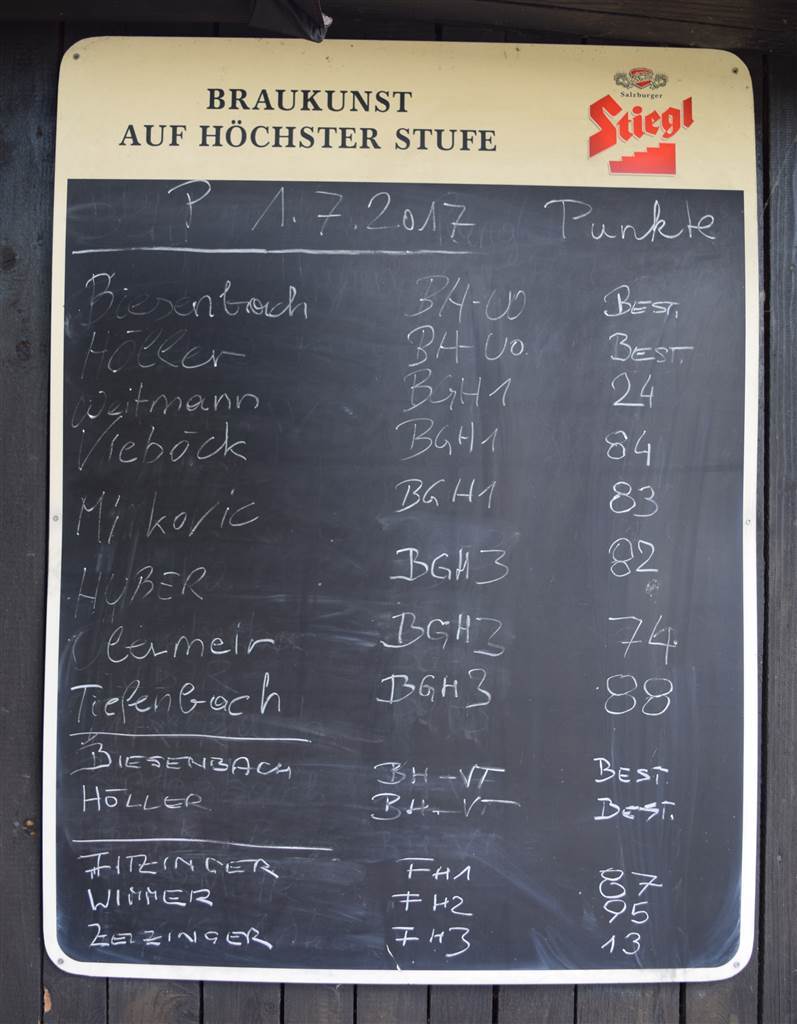 BRAUKUNST
AUF HÖCHSTER STUFE
Salzburger
Stiegl
P 1.7.2017 Punkte
Biesenbach BH-UO BEST.
Höller BH-UO. BEST.
Weitmann BGH1 24
Vieböck BGH1 84
Mirkovic BGH1 83
HUBER BGH3 82
BGH3 74
Tiefenbach BGH3 88
BIESENBACH BH-VT BEST.
HÖLLER BH-VT BEST.
FITZINGER FH1 87
WIMMER FH2 95
ZELZINGER FH3 13